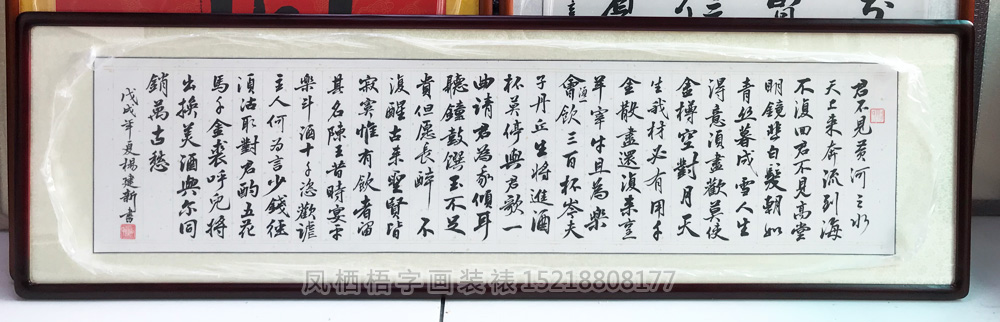 君不見黃河之水
天上來奔流到海
不復回君不見高堂
明鏡悲白髮朝如
青丝暮成雪人生
得意須盡歡莫使
金樽空對月天
生我材必有用千
金散盡還復來烹
羊宰牛且為樂
會須一飲三百杯岑夫
子丹丘生將進酒
杯莫停與君歌一
曲請君為我傾耳
聽鐘鼓饌玉不足
貴但愿長醉不
復醒古來聖賢皆
寂寞惟有飲者留
其名陳王昔時宴平
樂斗酒十千恣歡謔
主人何為言少錢徑
須沽取對君酌五花
馬千金裘呼兒將
出換美酒與尔同
銷萬古愁
戊戌年夏楊建新書
凤栖梧字画装裱15218808177